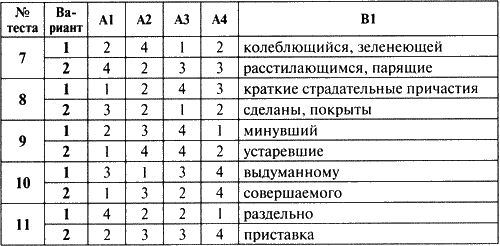 № теста Вариант А1 А2 А3 А4 В1
7 1 2 4 1 2 колеблющийся, зеленеющей
2 4 2 3 3 расстилающимся, парящие
8 1 1 2 4 3 краткие страдательные причастия
2 3 2 1 2 сделаны, покрыты
9 1 2 3 4 1 минувший
2 1 4 4 2 устаревшие
10 1 3 1 3 4 выдуманному
2 1 3 2 4 совершаемого
11 1 4 2 2 1 раздельно
2 2 3 3 4 приставка